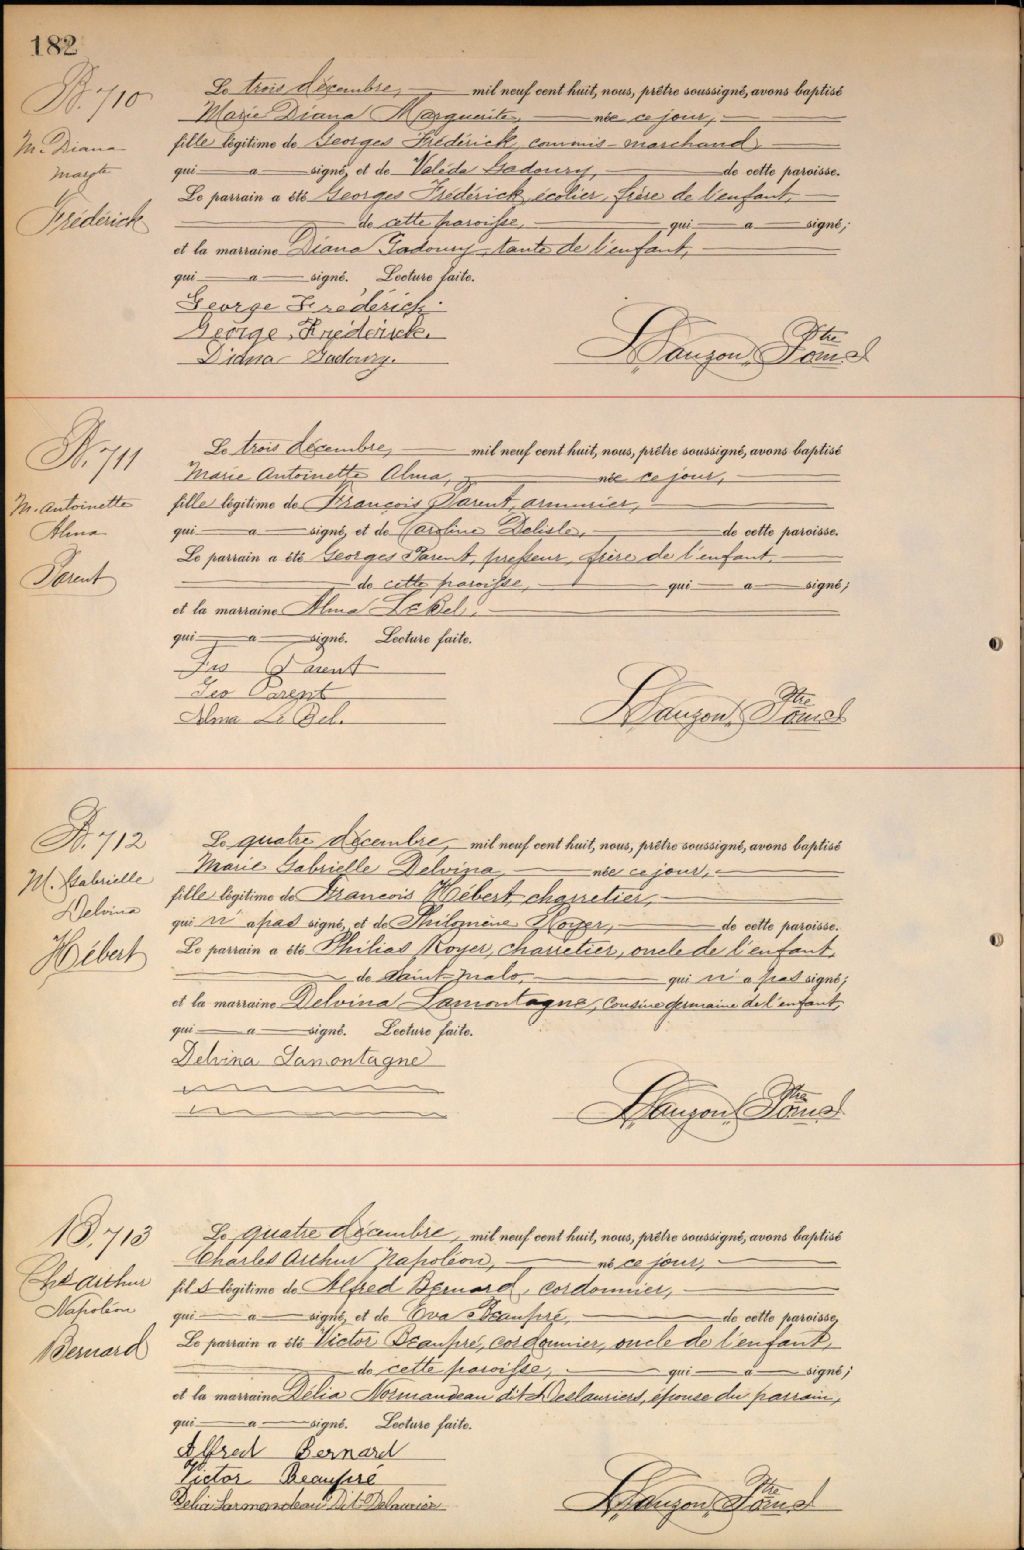 182
B. 710
M. Diana
Margte
Frédérick
Le trois décembre, mil neuf cent huit, nous, prêtre soussigné, avons baptisé
Marie Diana Marguerite, née ce jour,
fille légitime de Georges Frédérick, commis-marchand
qui a signé, et de Valéda Gadoury, de cette paroisse.
Le parrain a été Georges Frédérick, écolier, frère de l'enfant,
de cette paroisse, qui a signé;
et la marraine Diana Gadoury, tante de l'enfant,
qui a signé. Lecture faite.
George Frédérick.
George Frédérick.
Diana Gadoury.
Lauzon, Ptre
B. 711
M. Antoinette
Alma
Parent
Le trois décembre, mil neuf cent huit, nous, prêtre soussigné, avons baptisé
Marie Antoinette Alma, née ce jour,
fille légitime de François Parent, armurier,
qui a signé, et de Caroline Delisle, de cette paroisse.
Le parrain a été Georges Parent, presseur, frère de l'enfant,
de cette paroisse, qui a signé;
et la marraine Alma LeBel,
qui a signé. Lecture faite.
Frs Parent
Geo Parent
Alma Le Bel.
Lauzon, Ptre
B. 712
M. Gabrielle
Delvina
Hébert
Le quatre décembre, mil neuf cent huit, nous, prêtre soussigné, avons baptisé
Marie Gabrielle Delvina, née ce jour,
fille légitime de François Hébert, charretier,
qui n'a pas signé, et de Philomène Royer, de cette paroisse.
Le parrain a été Philias Royer, charretier, oncle de l'enfant,
de saint-Malo, qui n'a pas signé;
et la marraine Delvina Lamontagne, cousine germaine de l'enfant,
qui a signé. Lecture faite.
Delvina Lamontagne
Lauzon, Ptre
B. 713
Chs Arthur
Napoléon
Bernard
Le quatre décembre, mil neuf cent huit, nous, prêtre soussigné, avons baptisé
Charles Arthur Napoléon, né ce jour,
fils légitime de Alfred Bernard, cordonnier,
qui a signé, et de Eva Beaupré, de cette paroisse,
Le parrain a été Victor Beaupré, cordonnier, oncle de l'enfant,
de cette paroisse, qui a signé;
et la marraine Délia Normandeau dit Deslauriers, épouse du parrain,
qui a signé. Lecture faite.
Alfred Bernard
Victor Beaupré
Delia
Lauzon, Ptre